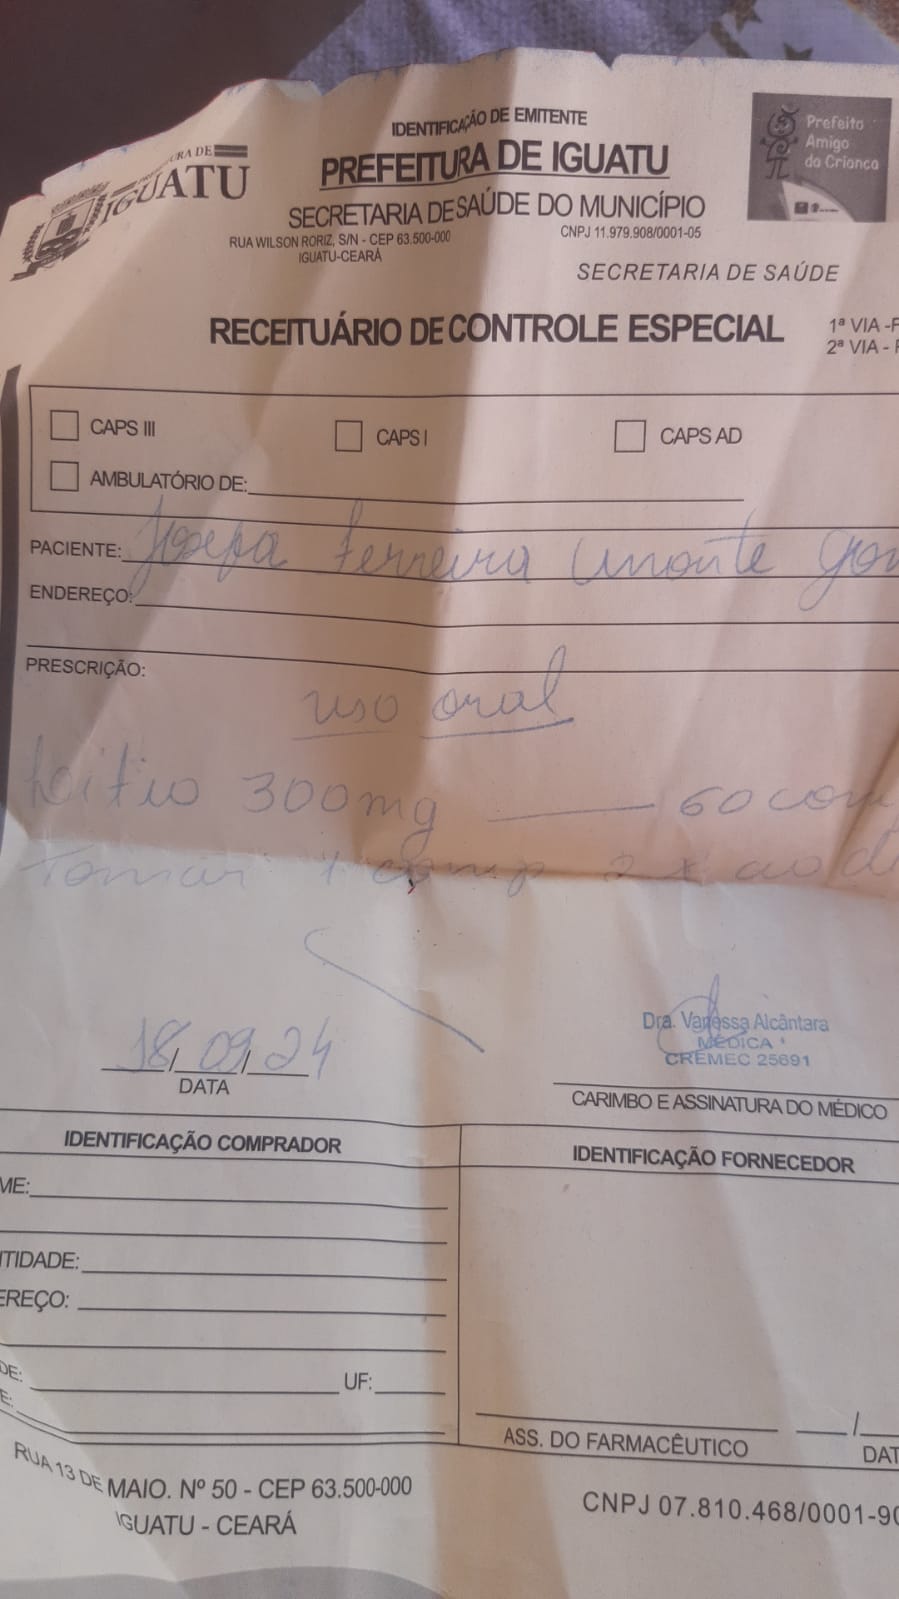 IDENTIFICAÇÃO DE EMITENTE
PREFEITURA DE IGUATU
SECRETARIA DE SAÚDE DO MUNICÍPIO
RUA WILSON RORIZ, S/N - CEP 63.500-000
IGUATU-CEARÁ
CNPJ 11.979.908/0001-05
URA DE
IGUATU
Prefeito
Amigo
da Criança
SECRETARIA DE SAÚDE
RECEITUÁRIO DE CONTROLE ESPECIAL
1ª VIA -F
2ª VIA - P
CAPS III
CAPS I
CAPS AD
AMBULATÓRIO DE:
PACIENTE: Josefa Ferreira
ENDEREÇO:
PRESCRIÇÃO:
uso oral
Lítio 300mg — 60 com
Tomar 1 comp 2x ao d
18/09/24
DATA
Dra. Vanessa Alcântara
MÉDICA
CREMEC 25691
CARIMBO E ASSINATURA DO MÉDICO
IDENTIFICAÇÃO COMPRADOR
IDENTIFICAÇÃO FORNECEDOR
ME:
TIDADE:
EREÇO:
DE:
UF:
E:
ASS. DO FARMACÊUTICO
/
DAT
RUA 13 DE MAIO. Nº 50 - CEP 63.500-000
IGUATU - CEARÁ
CNPJ 07.810.468/0001-90